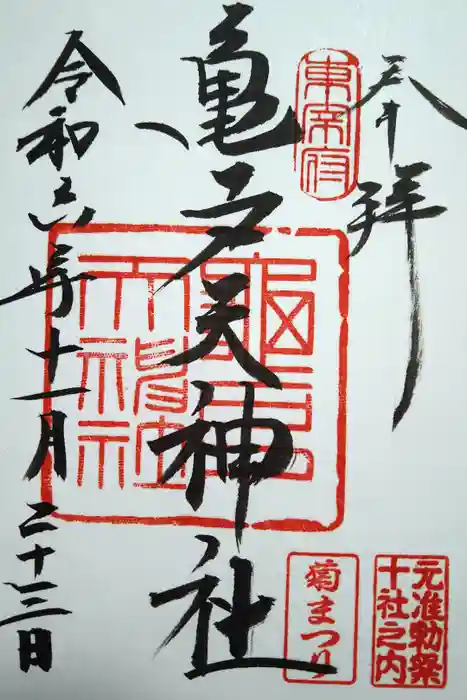 奉拝
東宰府
亀戸天神社
令和六年十一月二十三日
元准勅祭
十社之内
菊まつり